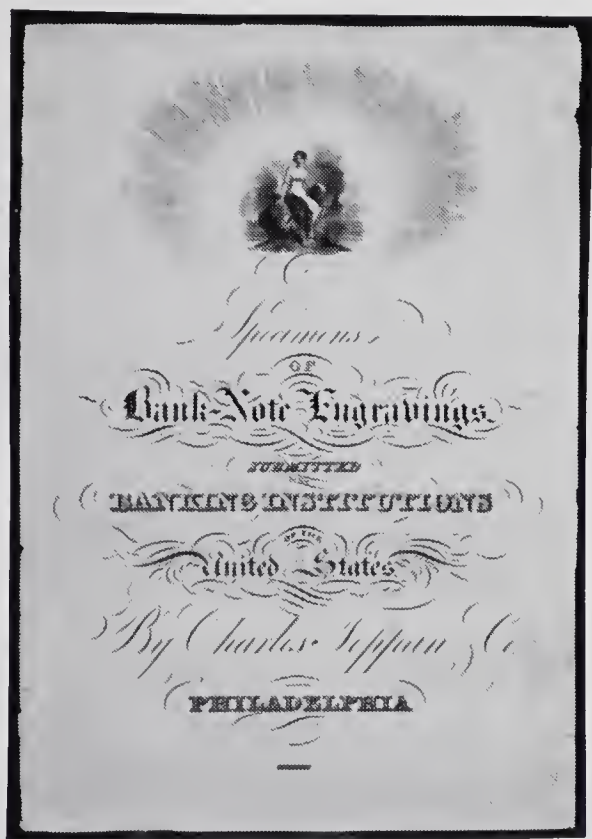 Specimens
OF
Bank-Note Engravings.
SUBMITTED
BANKING INSTITUTIONS
OF THE
United States
By Charles Toppan, & Co.
PHILADELPHIA